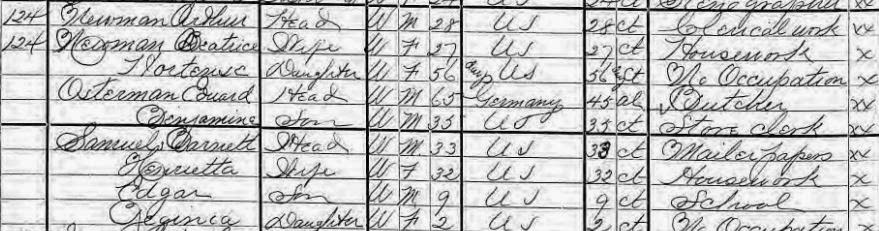 124 Newman Arthur Head W M 28 US 28 ct Clerical work xx
124 Newman Beatrice Wife W F 27 US 27 ct Housework x
Hortense Daughter W F 56 days US 56 ct No Occupation x
Osterman Head W M 65 Germany 45 al Butcher xx
Benjamine Son W M 35 US 35 ct Store clerk xx
Samuels Barnett Head W M 33 US 33 ct Mailer papers xx
Henrietta Wife W F 32 US 32 ct Housework x
Edgar Son W M 9 US 9 ct School x
Daughter W F 2 US 2 ct No Occupation x